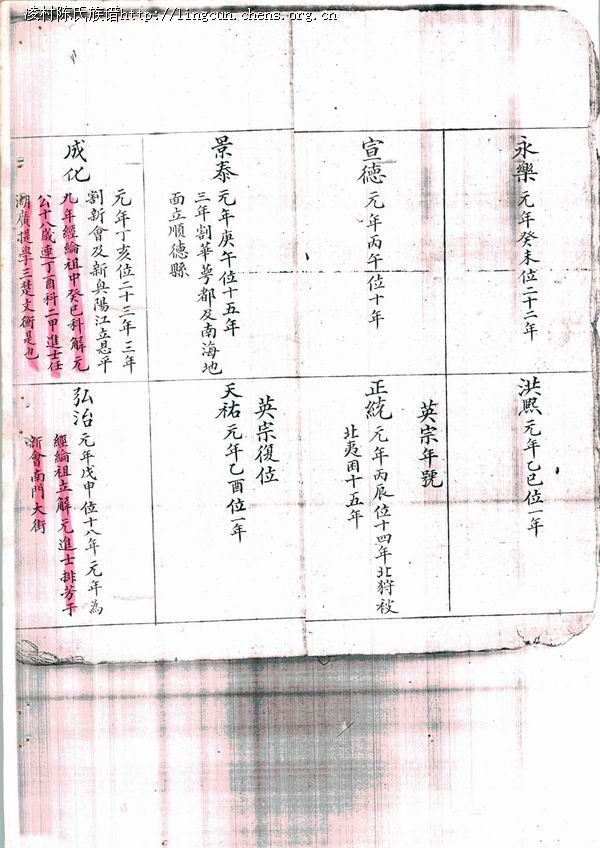 凌村陈氏族谱http://lingcun.chens.org.cn
永樂 元年癸未位二十二年
洪熙 元年乙巳位一年
宣德 元年丙午位十年
英宗年號
正統 元年丙辰位十四年北狩被
北夷困十五年
景泰 元年庚午位十五年
三年割華萼都及南海地
面立順德縣
英宗復位
天祐 元年乙酉位一年
成化 元年丁亥位二十三年三年
割新會及新興陽江立恩平
九年經綸祖中癸巳科解元
公十八歲連丁酉科二甲進士任
湖廣提學三楚文衡是也
弘治 元年戊申位十八年元年為
經綸祖立解元進士排芳于
新會南門大街